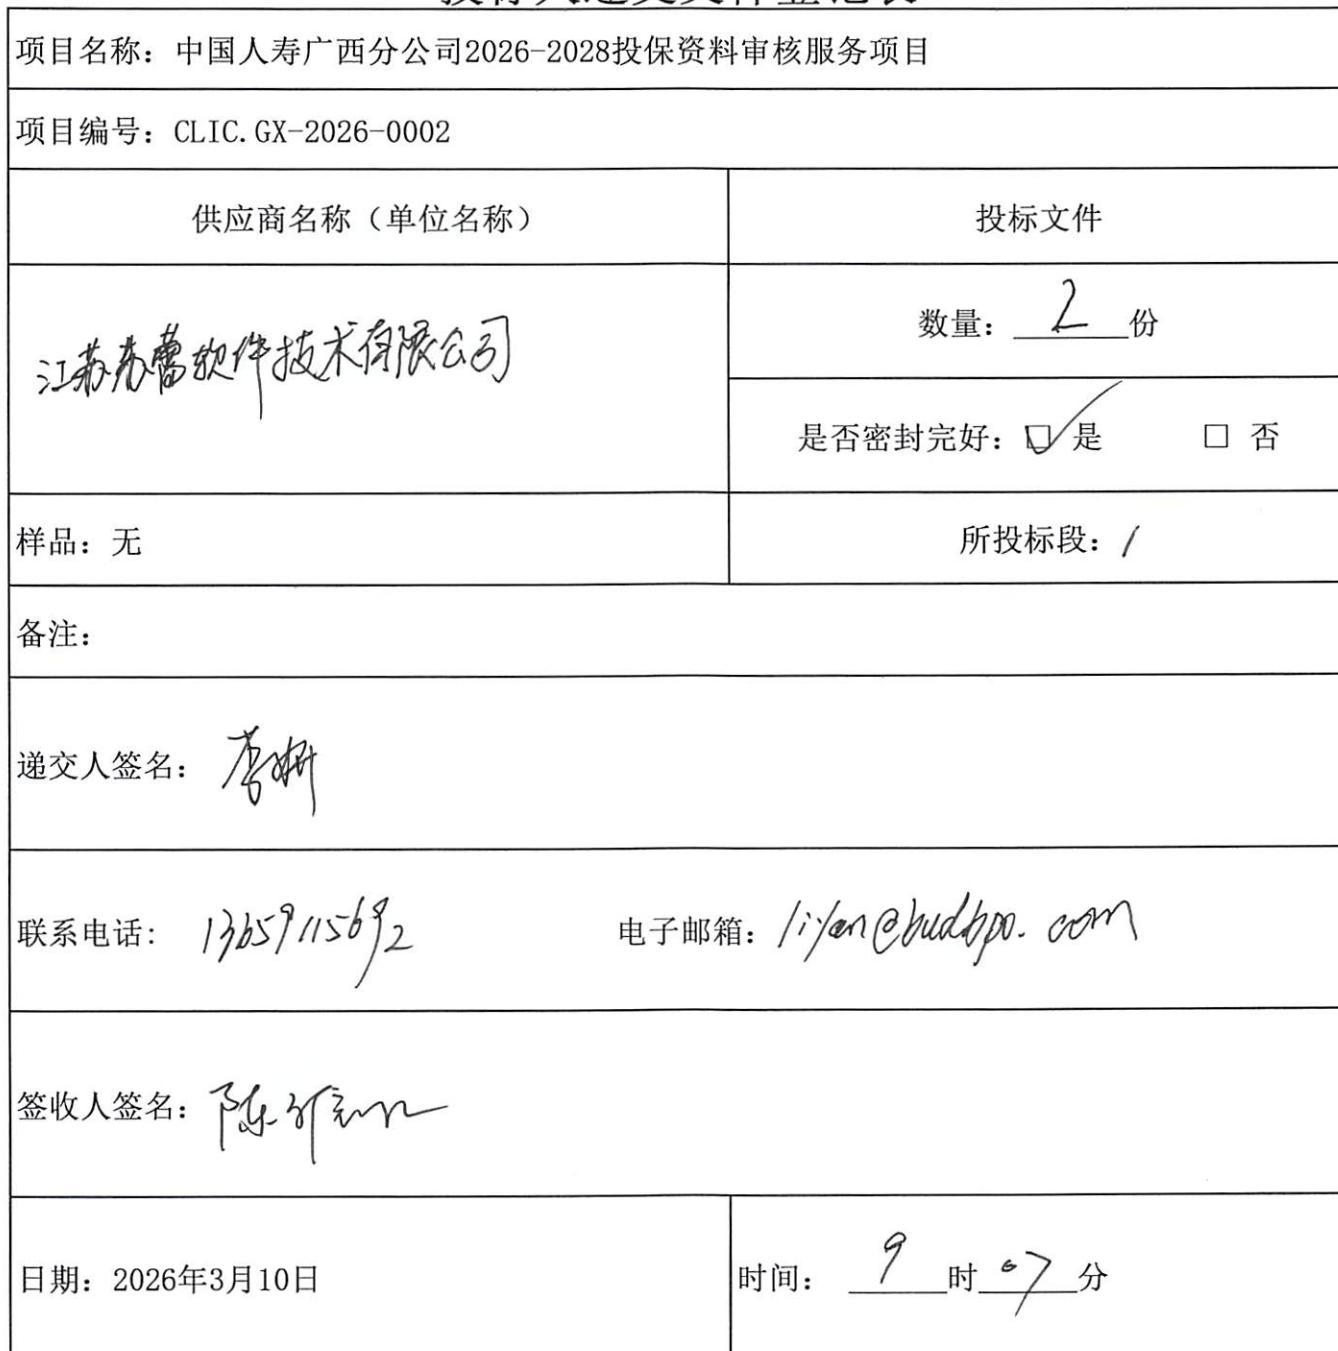 项目名称：中国人寿广西分公司2026-2028投保资料审核服务项目
项目编号：CLIC.GX-2026-0002
供应商名称（单位名称）
投标文件
江苏蓓蕾软件技术有限公司
数量：2份
是否密封完好：☑是 □ 否
样品：无
所投标段：/
备注：
递交人签名：李妍
联系电话：13659115692
电子邮箱：liyan@budbpo.com
签收人签名：陈
日期：2026年3月10日
时间：9时07分